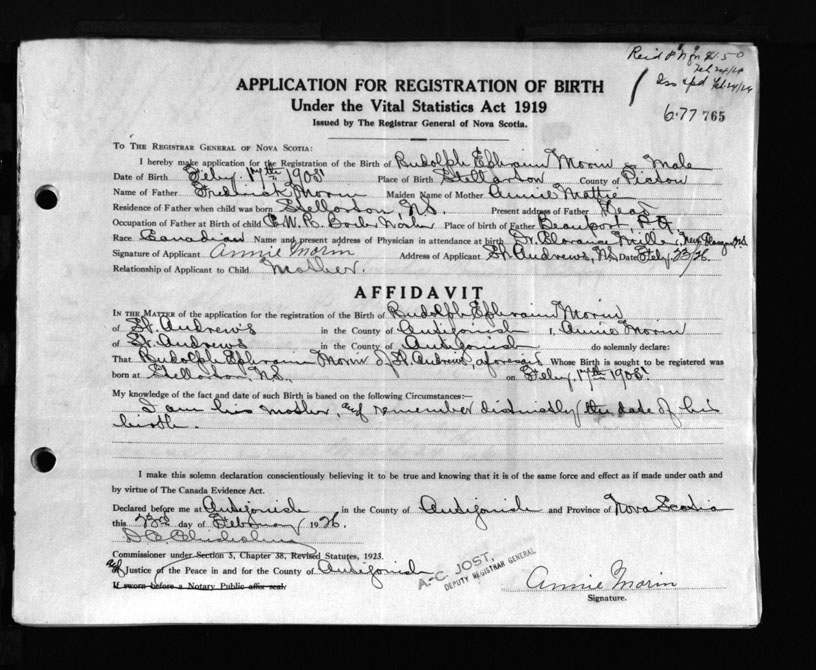 Feb 24/26
APPLICATION FOR REGISTRATION OF BIRTH
Under the Vital Statistics Act 1919
Issued by The Registrar General of Nova Scotia.
677 765
TO THE REGISTRAR GENERAL OF NOVA SCOTIA:
I hereby make application for the Registration of the Birth of Rudolph Ephraim Morin a Male
Date of Birth Feby. 17th 1905 Place of Birth Stellarton County of Pictou
Name of Father Fredrick Morin Maiden Name of Mother Annie Mattie
Residence of Father when child was born Stellarton, N.S. Present address of Father Dead
Occupation of Father at Birth of child Place of birth of Father Beauport, P.Q.
Race Canadian Name and present address of Physician in attendance at birth Dr. Clarance Miller, New Glasgow, N.S
Signature of Applicant Annie Morin Address of Applicant St. Andrews, N.S. Date Feby. 23/26
Relationship of Applicant to Child Mother.
AFFIDAVIT
IN THE MATTER of the application for the registration of the Birth of Rudolph Ephraim Morin
of St. Andrew's in the County of Antigonish I, Annie Morin
of St. Andrews in the County of Antigonish do solemnly declare:
That Rudolph Ephraim Morin of St. Andrews, aforesaid Whose Birth is sought to be registered was
born at Stellarton, N.S., on Feby. 17th 1905.
My knowledge of the fact and date of such Birth is based on the following Circumstances:—
I am his mother, and remember distinctly the date of his
birth.
I make this solemn declaration conscientiously believing it to be true and knowing that it is of the same force and effect as if made under oath and
by virtue of The Canada Evidence Act.
Declared before me at Antigonish in the County of Antigonish and Province of Nova Scotia
this 23rd day of February 1926.
D.C. Chisholm
Commissioner under Section 5, Chapter 38, Revised Statutes, 1923.
and Justice of the Peace in and for the County of Antigonish
If sworn before a Notary Public affix seal.
A.C. JOST,
DEPUTY REGISTRAR GENERAL
Annie Morin
Signature.